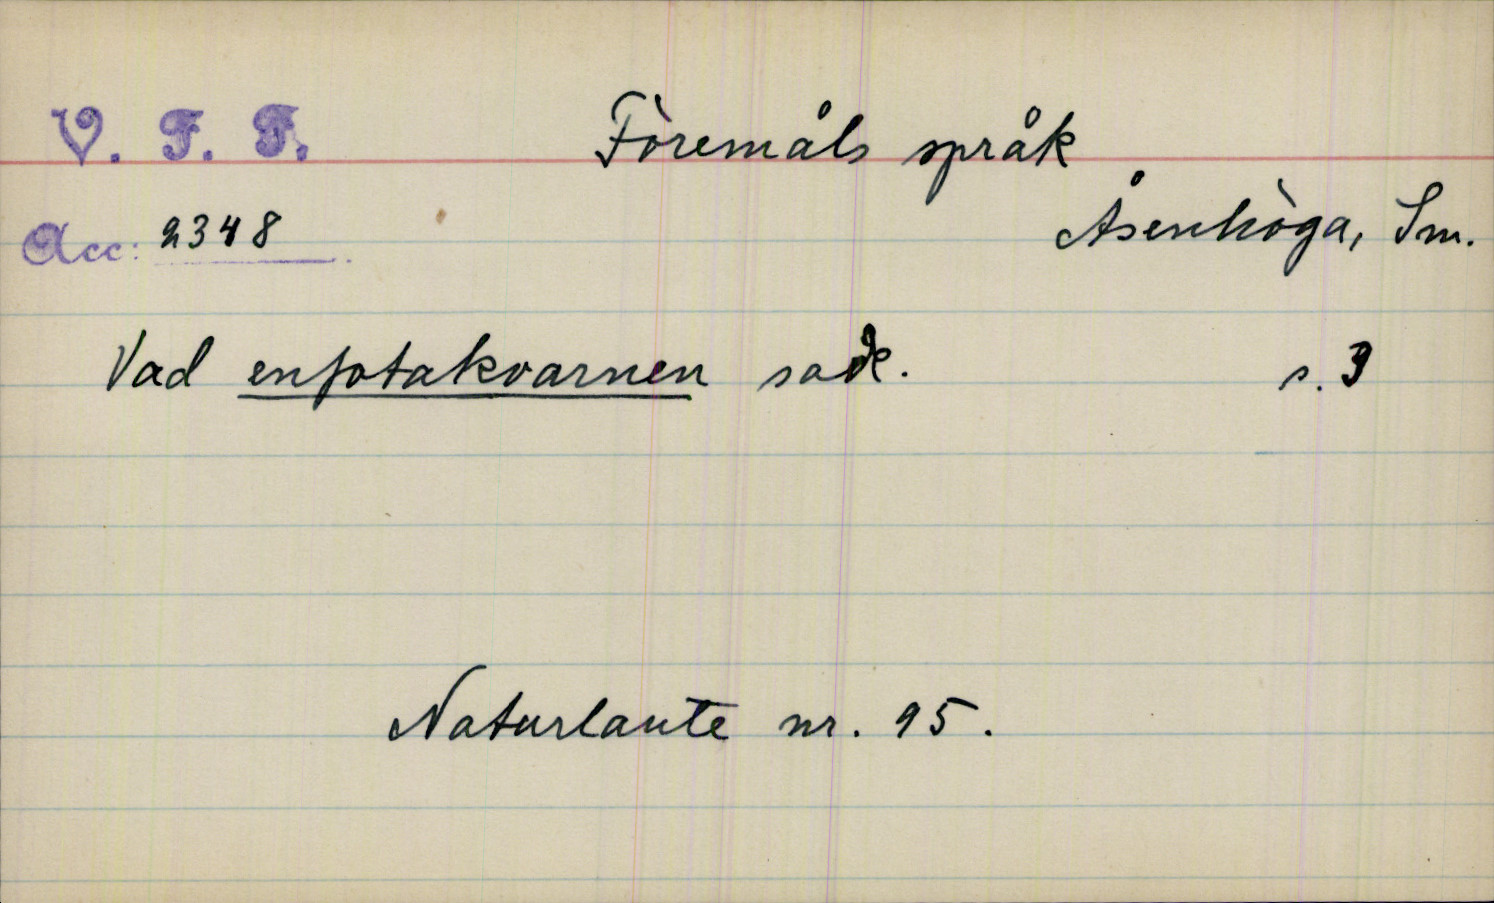 V. F. F.
Föremåls språk
Acc: 2348
Åsenhöga, Sm.
Vad enfotakvarnen sade. s. 3
Naturlaute nr. 95.